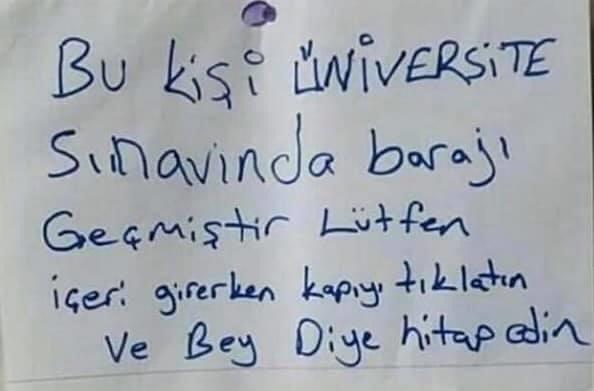 Bu kişi ÜNİVERSİTE
Sınavında barajı
Geçmiştir Lütfen
içeri girerken kapıyı tıklatın
Ve Bey Diye hitap edin